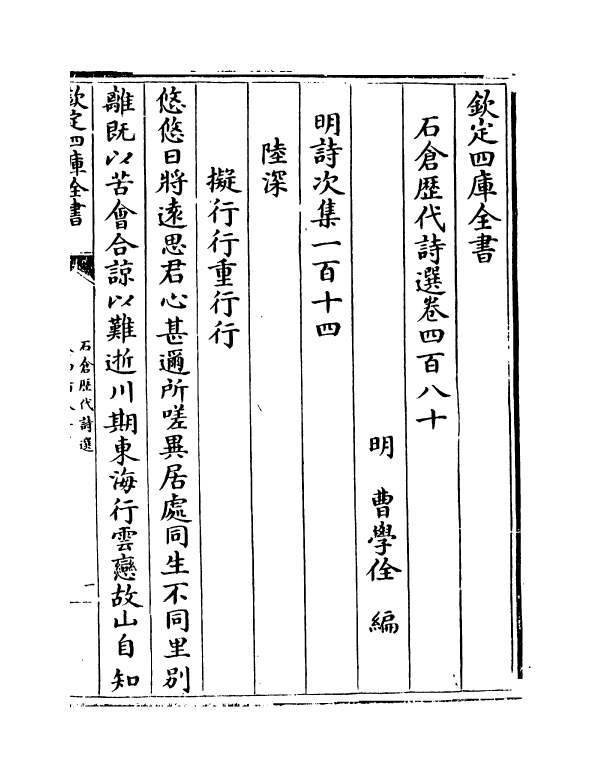 欽定四庫全書
石倉歴代詩選卷四百八十
明　曹學佺　編
明詩次集一百十四
陸深
擬行行重行行
悠悠日將逺思君心甚邇所嗟異居處同生不同里别
離既以苦會合諒以難逝川期東海行雲戀故山自知
欽定四庫全書
石倉歴代詩選
一